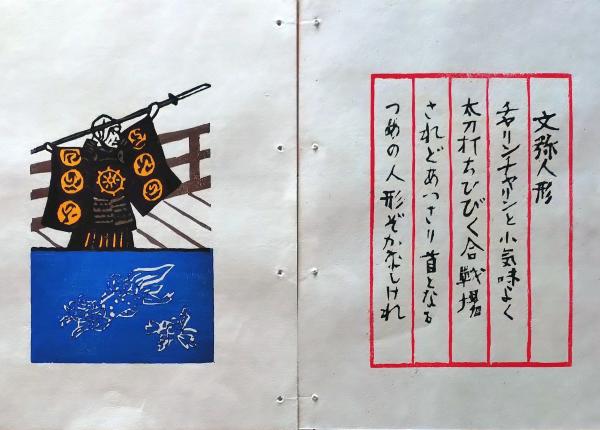 文弥人形
チャリンチャリンと小気味よく
太刀打ちひびく合戦場
されどあっさり首となる
つめの人形ぞかなしけれ